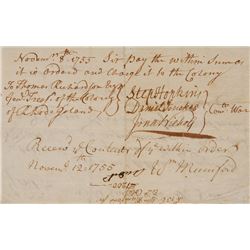 Novem 8th 1755 Sir pay the within Sum as
it is Orderd and Charge it to the Colony
To Thomas Richardson Esqr
Genl Treasr of the Colony
of Rhode Island
Step Hopkins
Daniel
Jona Nichols
Comtt War
Recevd ye Contents of ye within order
Novemr 12th 1755 Wm Mumford